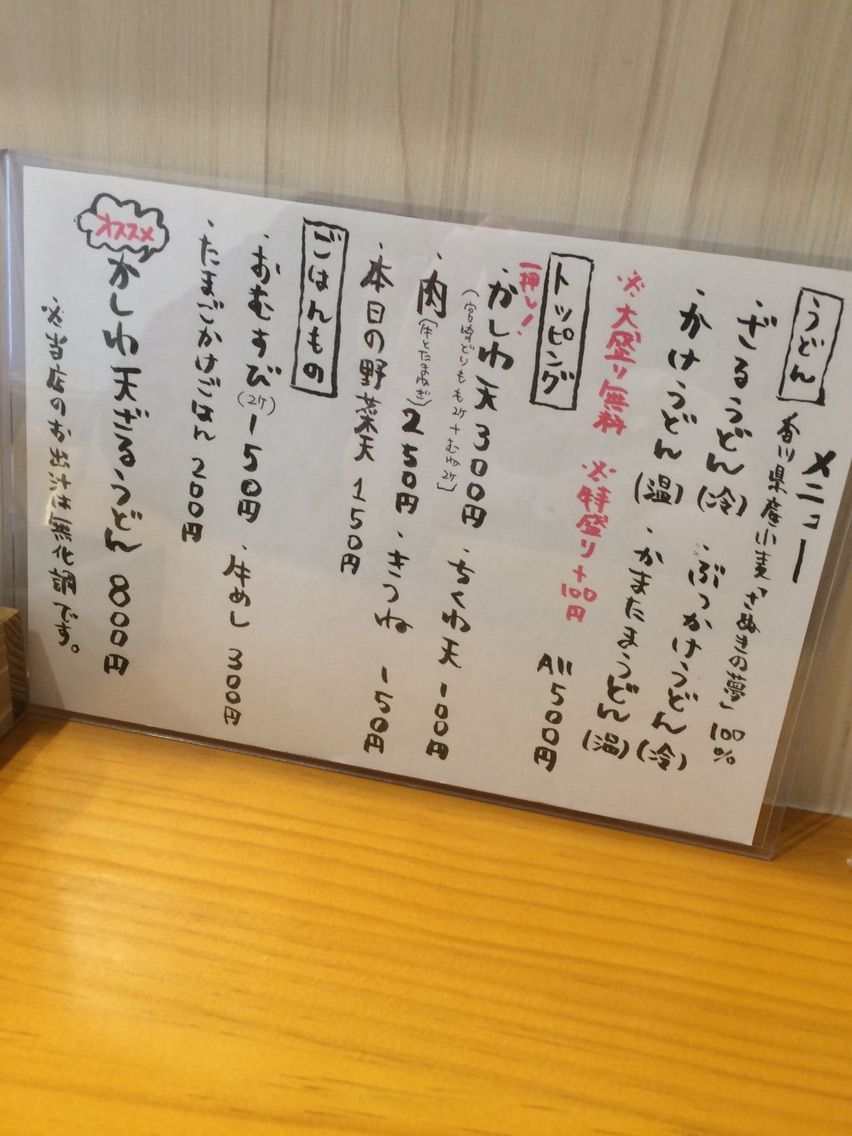 メニュー
うどん 香川県産小麦「さぬきの夢」100%
・ざるうどん(冷) ・ぶっかけうどん(冷)
・かけうどん(温) ・かまたまうどん(温)
※大盛り無料 ※特盛り+100円
All 500円
トッピング
一押し!
・かしわ天 300円 ・ちくわ天 100円
(宮崎どりもも2ケ+むね2ケ)
・肉(牛とたまねぎ) 250円 ・きつね 150円
・本日の野菜天 150円
ごはんもの
・おむすび(2ケ) 150円 ・牛めし 300円
・たまごかけごはん 200円
オススメ
かしわ天ざるうどん 800円
※当店のお出汁は無化調です。